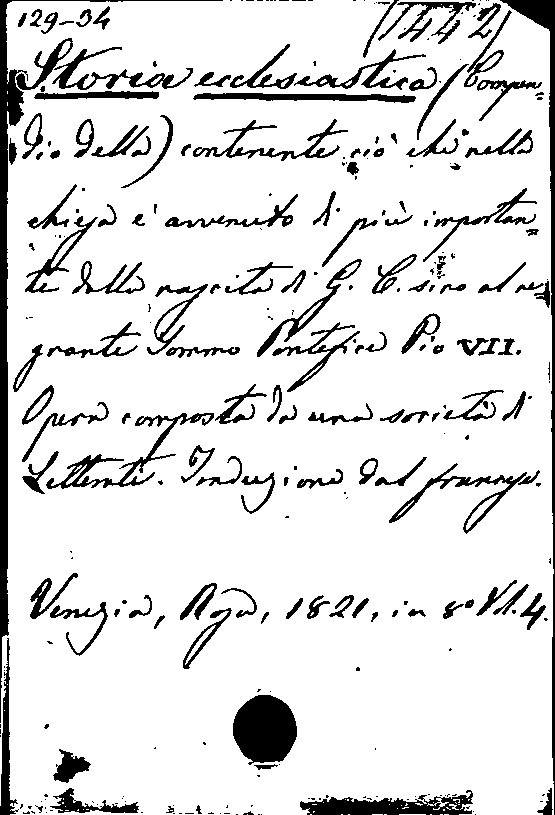 129-34 (1442)
Storia ecclesiastica (Compen=
dio della) contenente ciò che nella
chiesa è avvenuto di più importan=
te dalla nascita di G. C. sino al re=
gnante Sommo Pontefice Pio VII.
Opera composta da una società di
Letterati. Traduzione dal francese.
Venezia, Rosa, 1821, in 8° Vol. 4.